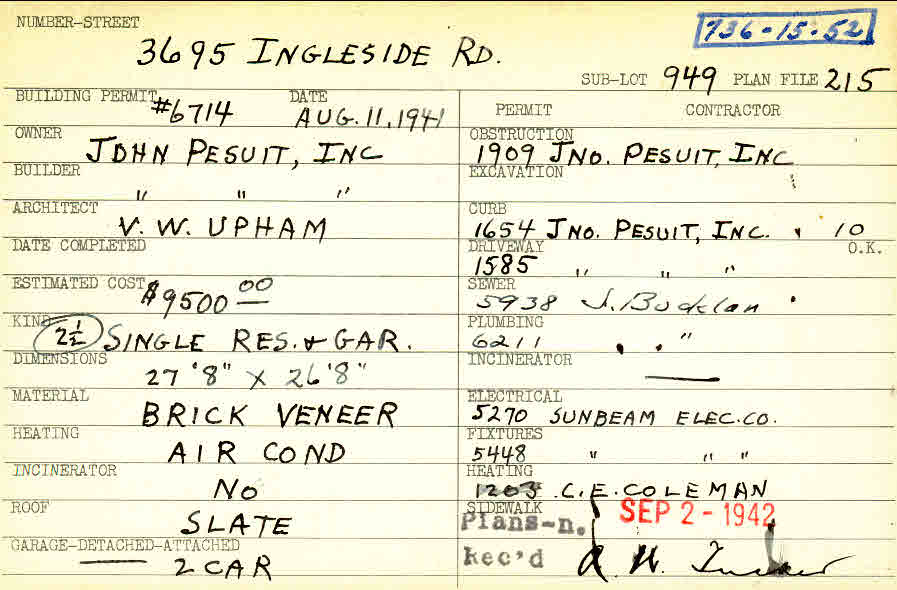 NUMBER-STREET
736-15-52
3695 INGLESIDE RD.
SUB-LOT 949 PLAN FILE 215
BUILDING PERMIT #6714 DATE AUG. 11, 1941
OWNER JOHN PESUIT, INC
BUILDER " " "
ARCHITECT V. W. UPHAM
DATE COMPLETED
ESTIMATED COST $9500 00
KIND 2½ SINGLE RES. & GAR.
DIMENSIONS 27'8" X 26'8"
MATERIAL BRICK VENEER
HEATING AIR COND
INCINERATOR NO
ROOF SLATE
GARAGE-DETACHED-ATTACHED 2 CAR
PERMIT CONTRACTOR
OBSTRUCTION 1909 JNO. PESUIT, INC
EXCAVATION
CURB 1654 JNO. PESUIT, INC. 10
DRIVEWAY 1585 " " " O.K.
SEWER 5938
PLUMBING 6211 "
INCINERATOR
ELECTRICAL 5270 SUNBEAM ELEC. CO.
FIXTURES 5448 " " "
HEATING 1203 C. E. COLEMAN
SIDEWALK SEP 2 - 1942
Plans-n.
Rec'd